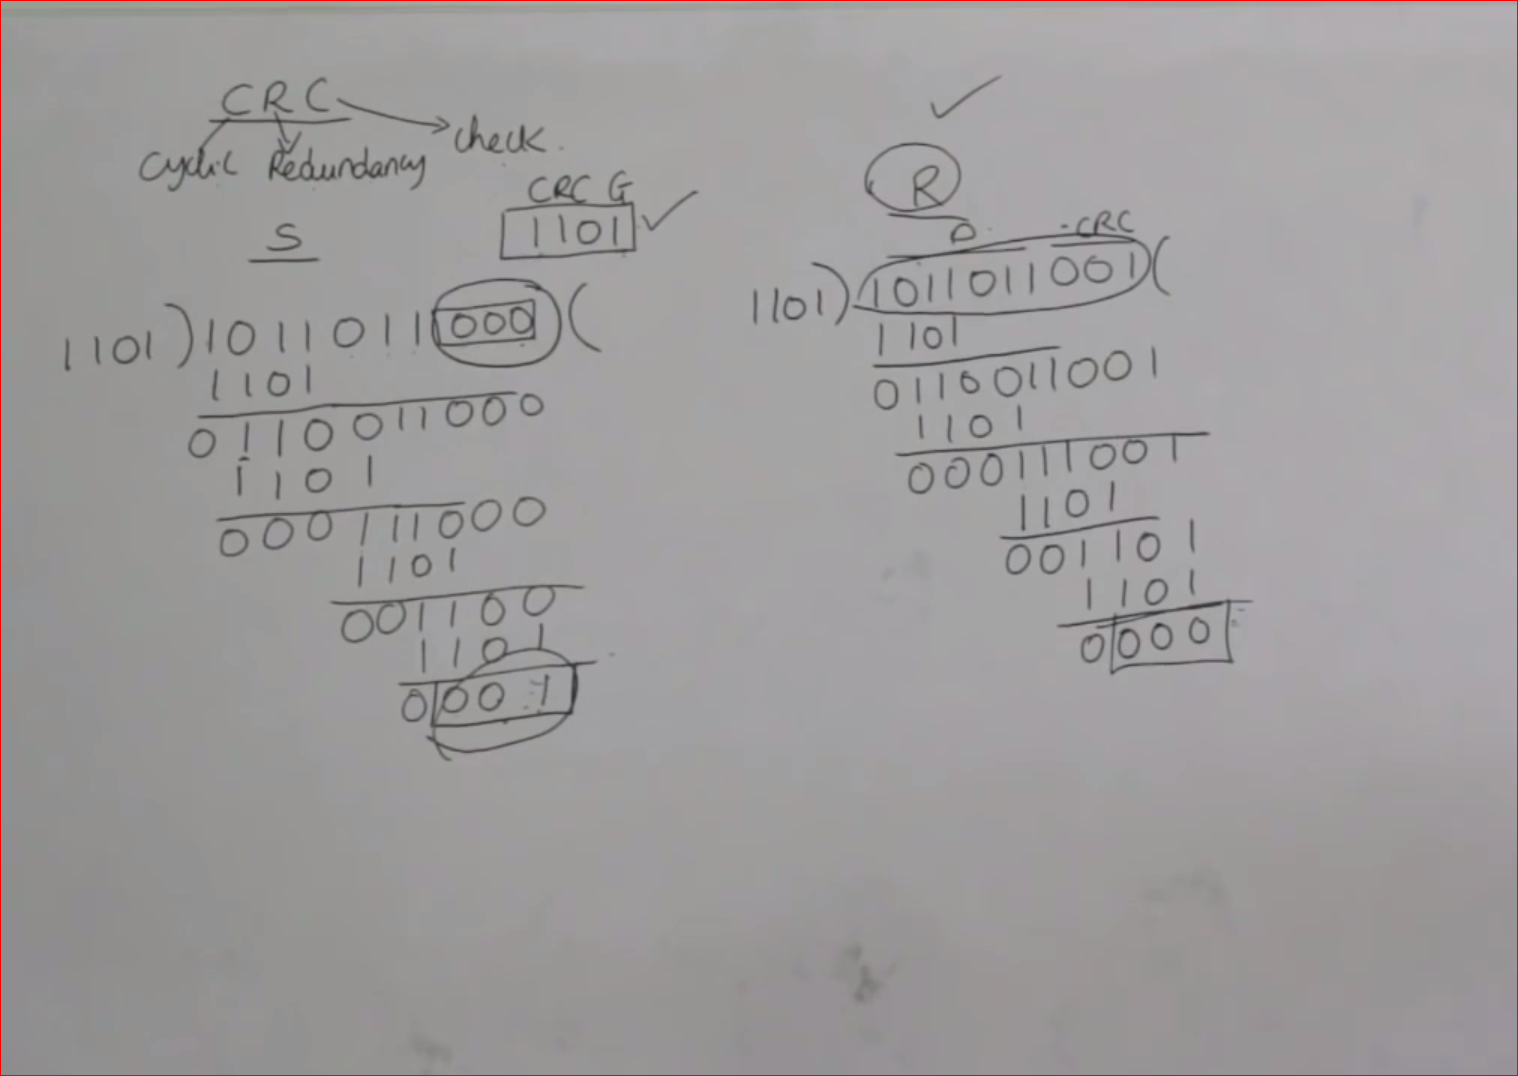 CRC
Cyclic Redundancy check.
S
CRC G
1101
1101 ) 1011011 000 (
1101
0110011000
1101
000111000
1101
001100
1101
0001
R
D CRC
1101 ) 1011011001 (
1101
0110011001
1101
000111001
1101
001101
1101
0000